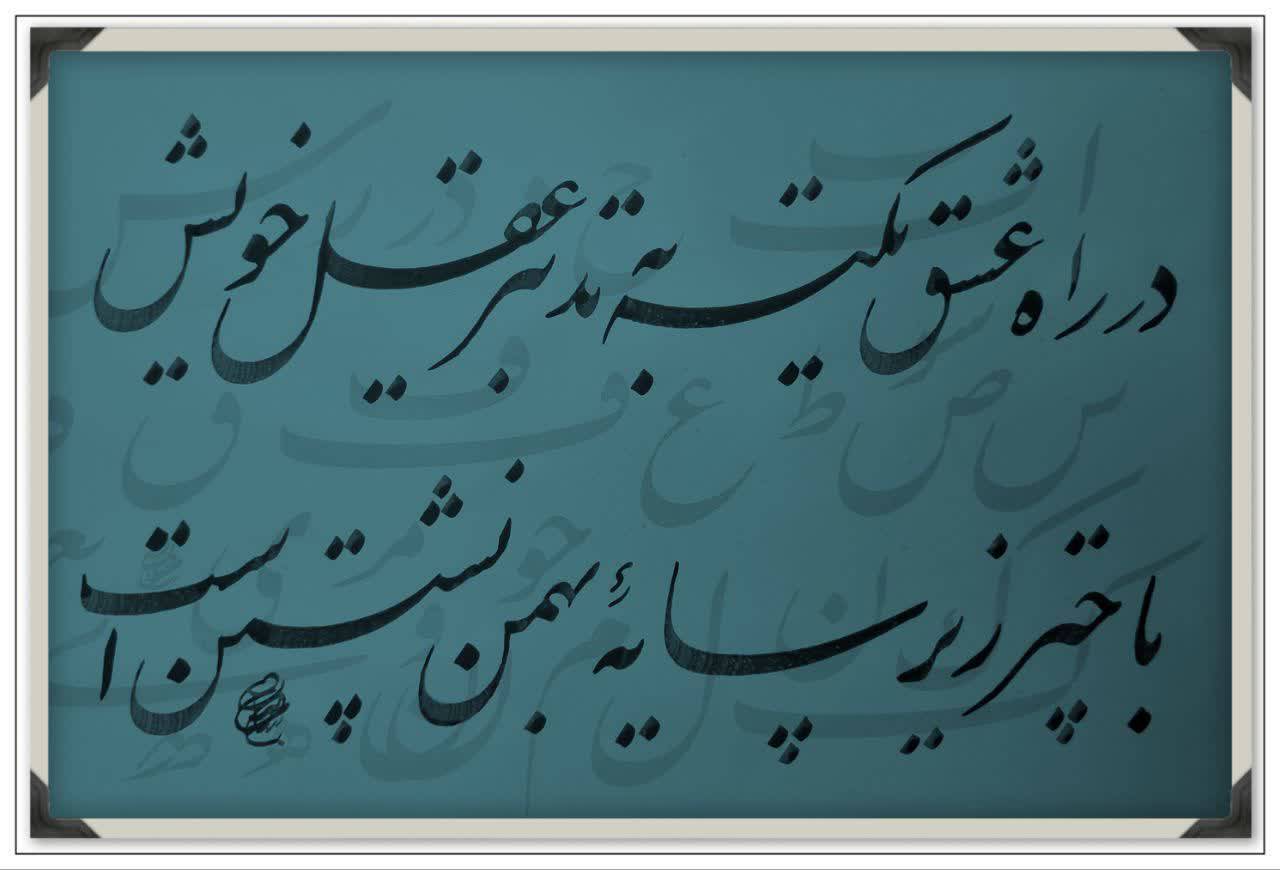 در راه عشق تکیه به تدبیر عقل خویش
با چتر زیر سایهٔ بهمن نشستن است